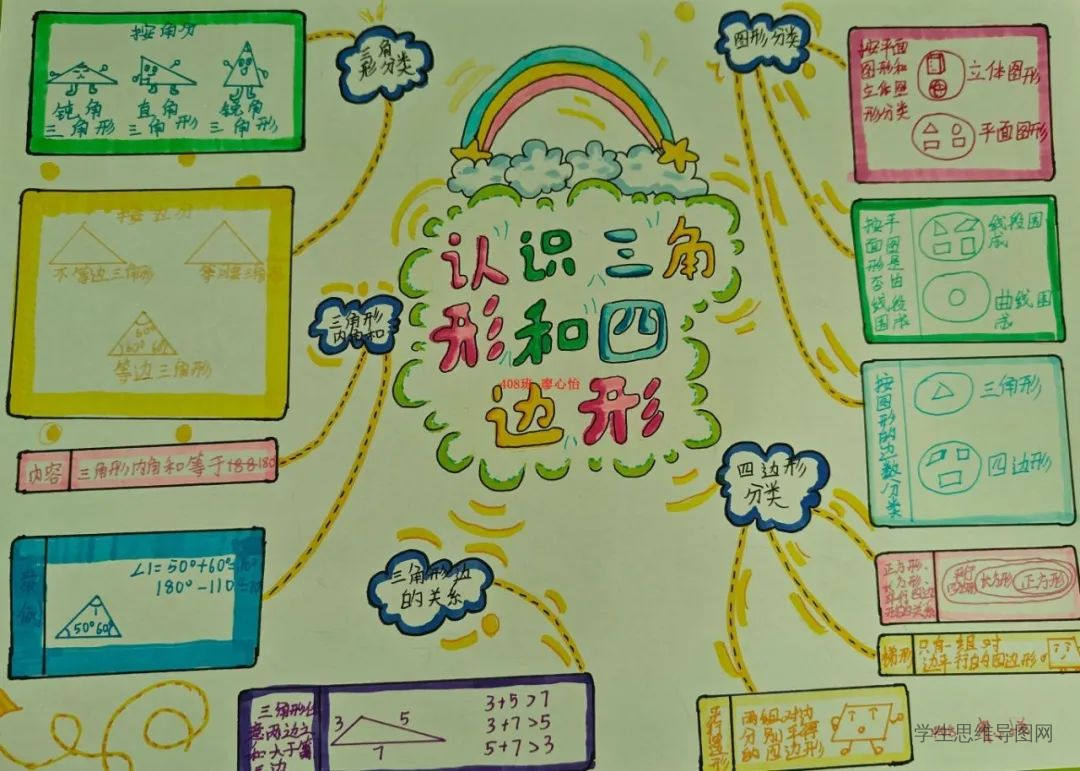 认识三角
形和四
边形
408班 廖心怡
三角
形分类
按角分
钝角
三角形
直角
三角形
锐角
三角形
按边分
不等边三角形
等腰三角形
60°
60° 60°
等边三角形
三角形
内角和
内容
三角形内角和等于180
∠1=50°+60°=110°
180°-110=70
1
50° 60°
三角形边
的关系
三角形任
意两边之
和大于第
三边
3
5
7
3+5>7
3+7>5
5+7>3
图形分类
按平面
图形和
立体图
形分类
立体图形
平面图形
按平
面图
形是
否由
线段
围成
线段围
成
曲线围
成
按图形的边数分类
三角形
四边形
四边形
分类
正方形、
长方形、
平行四边
形的关系
平行
四边形
长方形
正方形
梯形
只有一组对
边平行的四边形。
平行四边形
两组对边
分别平行
的四边形
学生思维导图网